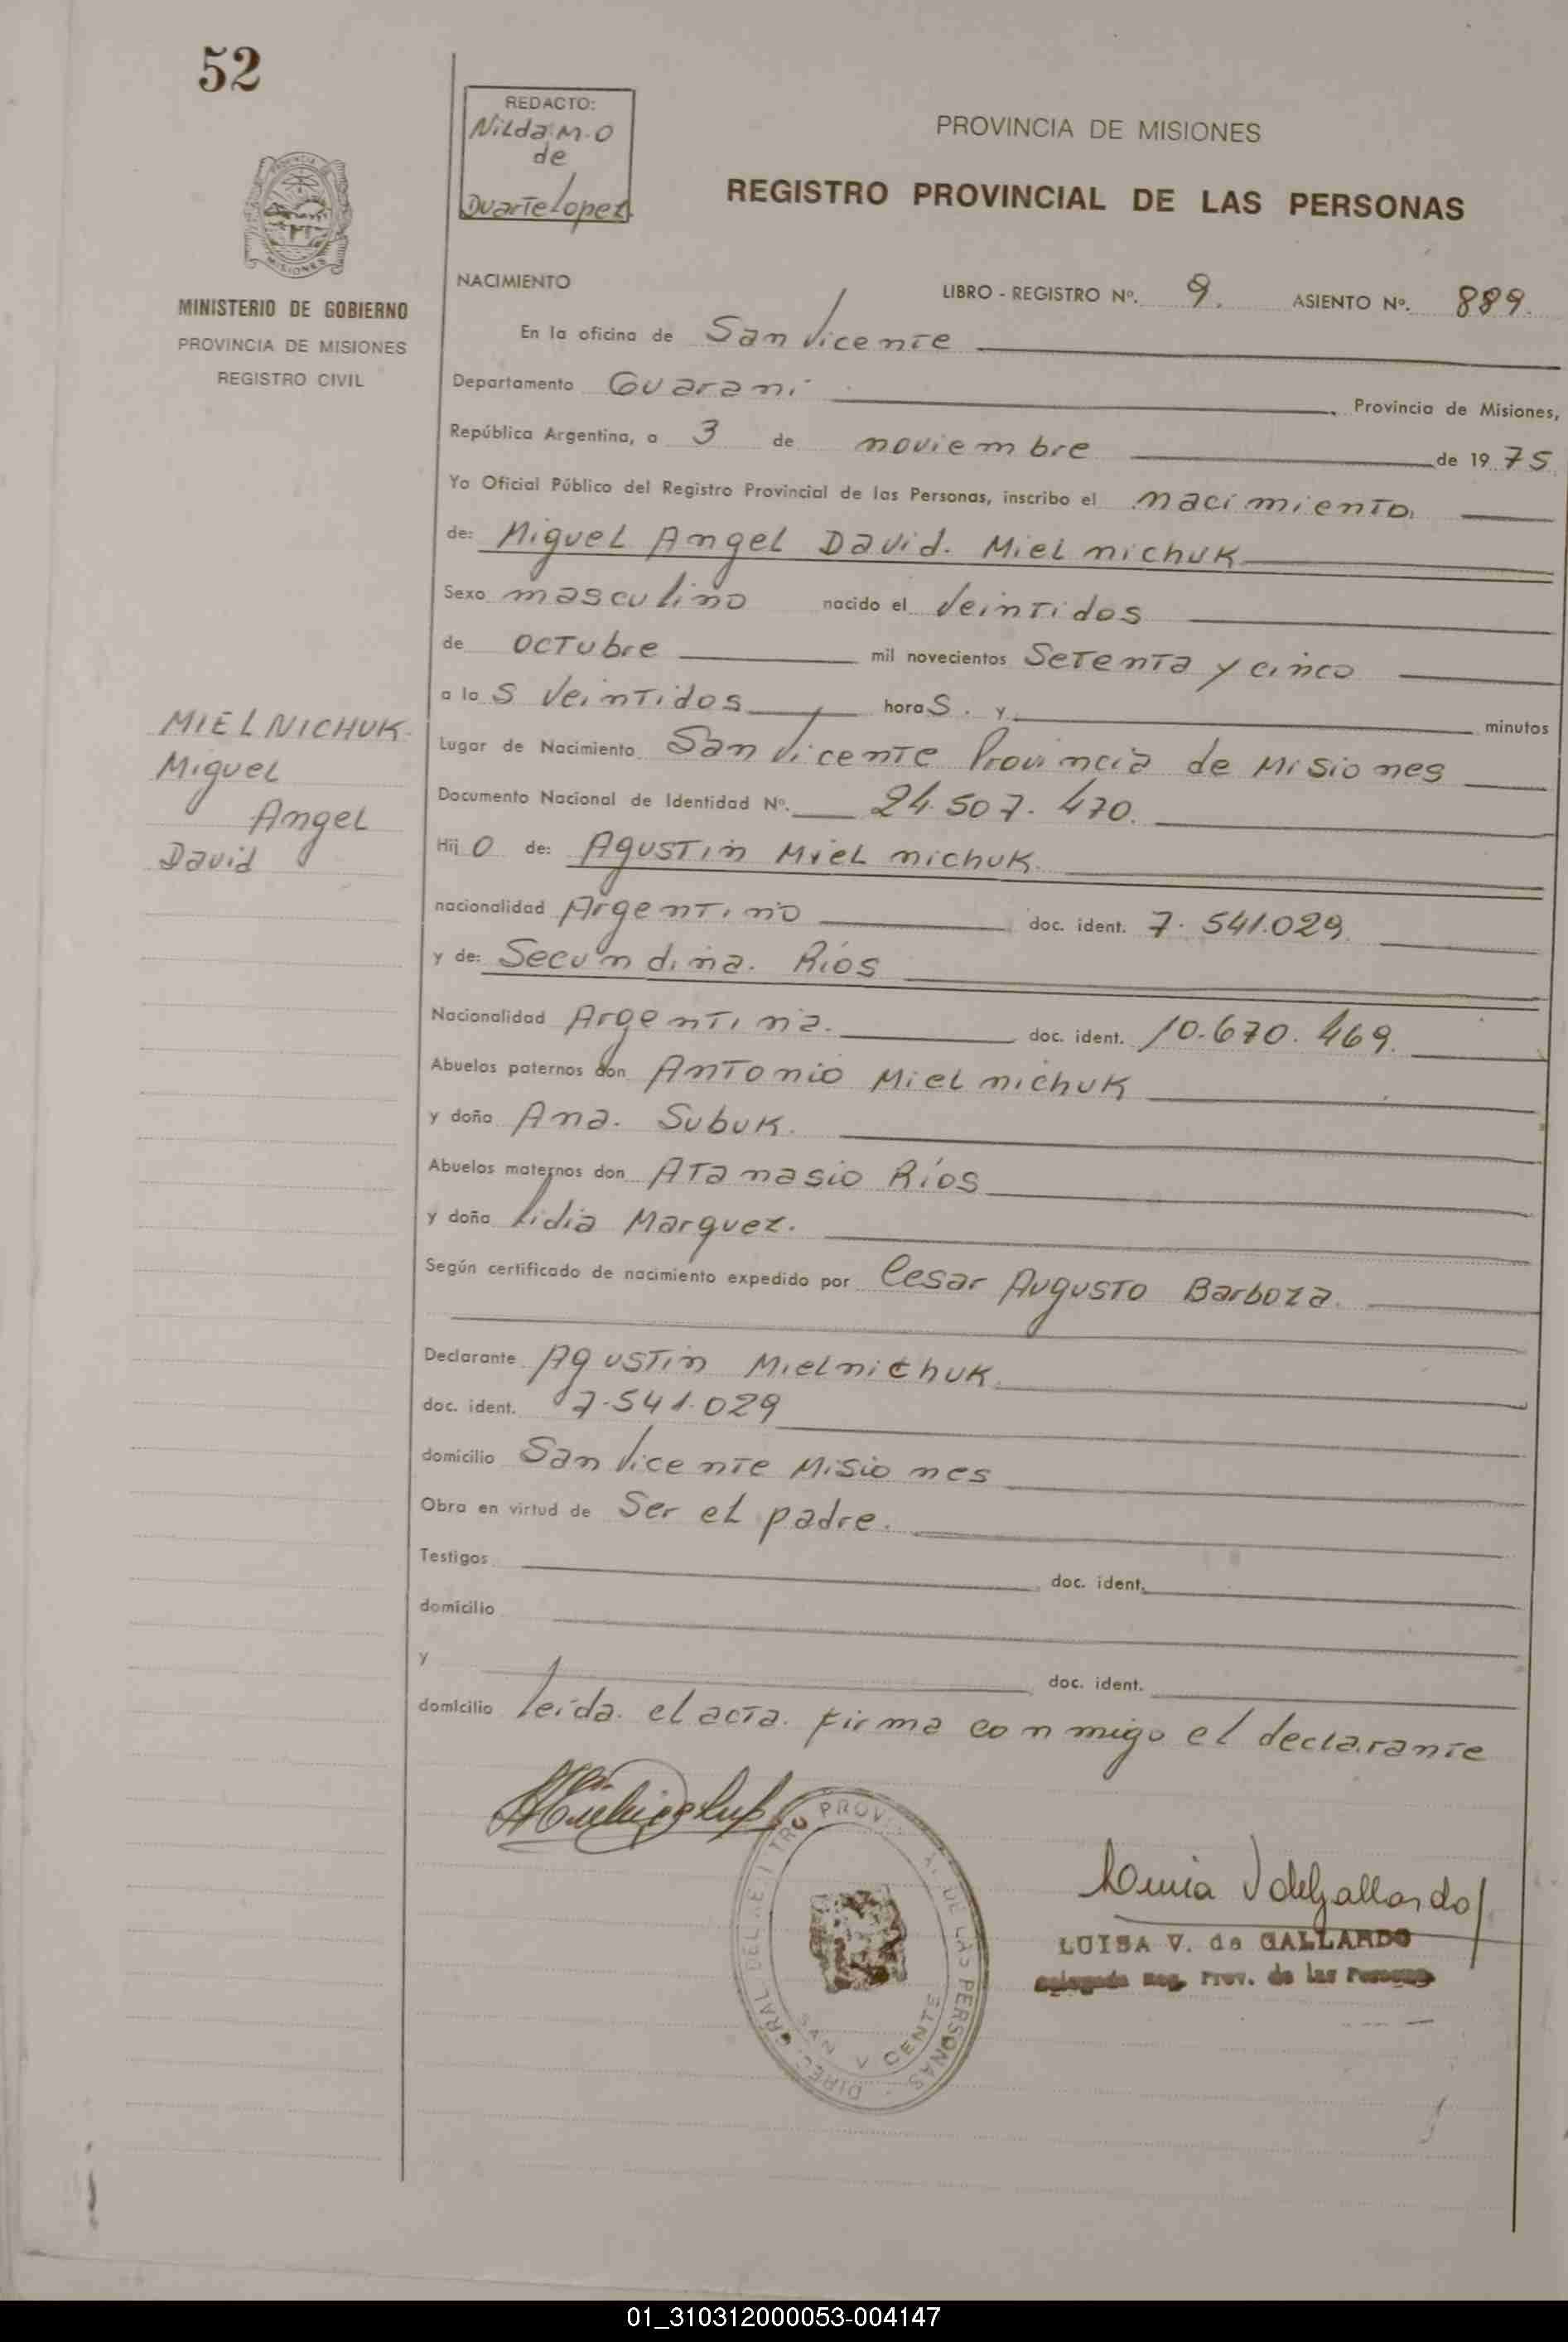 52
REDACTO:
Nilda M. O
de
Duarte Lopez.
PROVINCIA DE MISIONES
REGISTRO PROVINCIAL DE LAS PERSONAS
MISIONES
MINISTERIO DE GOBIERNO
PROVINCIA DE MISIONES
REGISTRO CIVIL
NACIMIENTO
LIBRO - REGISTRO Nº. 9. ASIENTO Nº. 889.
En la oficina de San Vicente
Departamento Guarani Provincia de Misiones,
República Argentina, a 3 de noviembre de 1975.
Yo Oficial Público del Registro Provincial de las Personas, inscribo el nacimiento
de: Miguel Angel David. Mielnichuk
Sexo masculino nacido el veintidos
de octubre mil novecientos Setenta y cinco
a las veintidos horas. y minutos
Lugar de Nacimiento San Vicente Provincia de Misiones
Documento Nacional de Identidad Nº. 24.507.470.
Hijo de: Agustin Mielnichuk.
nacionalidad Argentino doc. ident. 7.541.029.
y de: Secundina. Ríos
Nacionalidad Argentina. doc. ident. 10.670.469.
Abuelos paternos don Antonio Mielnichuk
y doña Ana. Subuk.
Abuelos maternos don Atanasio Ríos
y doña Lidia Marquez.
Según certificado de nacimiento expedido por Cesar Augusto Barboza.
Declarante Agustin Mielnichuk.
doc. ident. 7.541.029
domicilio San Vicente Misiones
Obra en virtud de Ser el padre.
Testigos doc. ident.
domicilio
y doc. ident.
domicilio leída. el acta. firma conmigo el declarante
MIELNICHUK.
Miguel
Angel
David
DE LAS PERSONAS
SAN VICENTE
LUISA V. de GALLARDO
Delegada Reg. Prov. de las Personas
01_310312000053-004147